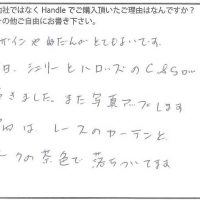 社ではなく Handle でご購入頂いたご理由はなんですか?
の他ご自由にお書き下さい。
デザインや
がとてもよいです。
日、シェリーとトロッズの
きました。また写真アップします
は レースのカーテンと
の茶色で 落ちついてます